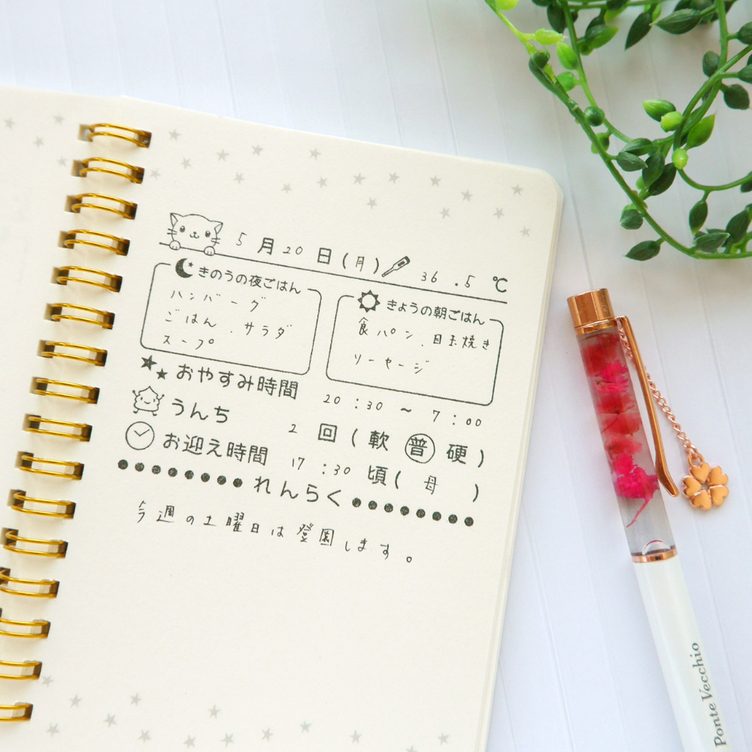 5月20日(月) 36.5℃
きのうの夜ごはん
ハンバーグ
ごはん、サラダ
スープ
きょうの朝ごはん
食パン、目玉焼き
ソーセージ
おやすみ時間 20:30 ~ 7:00
うんち 2回(軟 普 硬)
お迎え時間 17:30頃(母 )
れんらく
今週の土曜日は登園します。
Ponte Vecchio